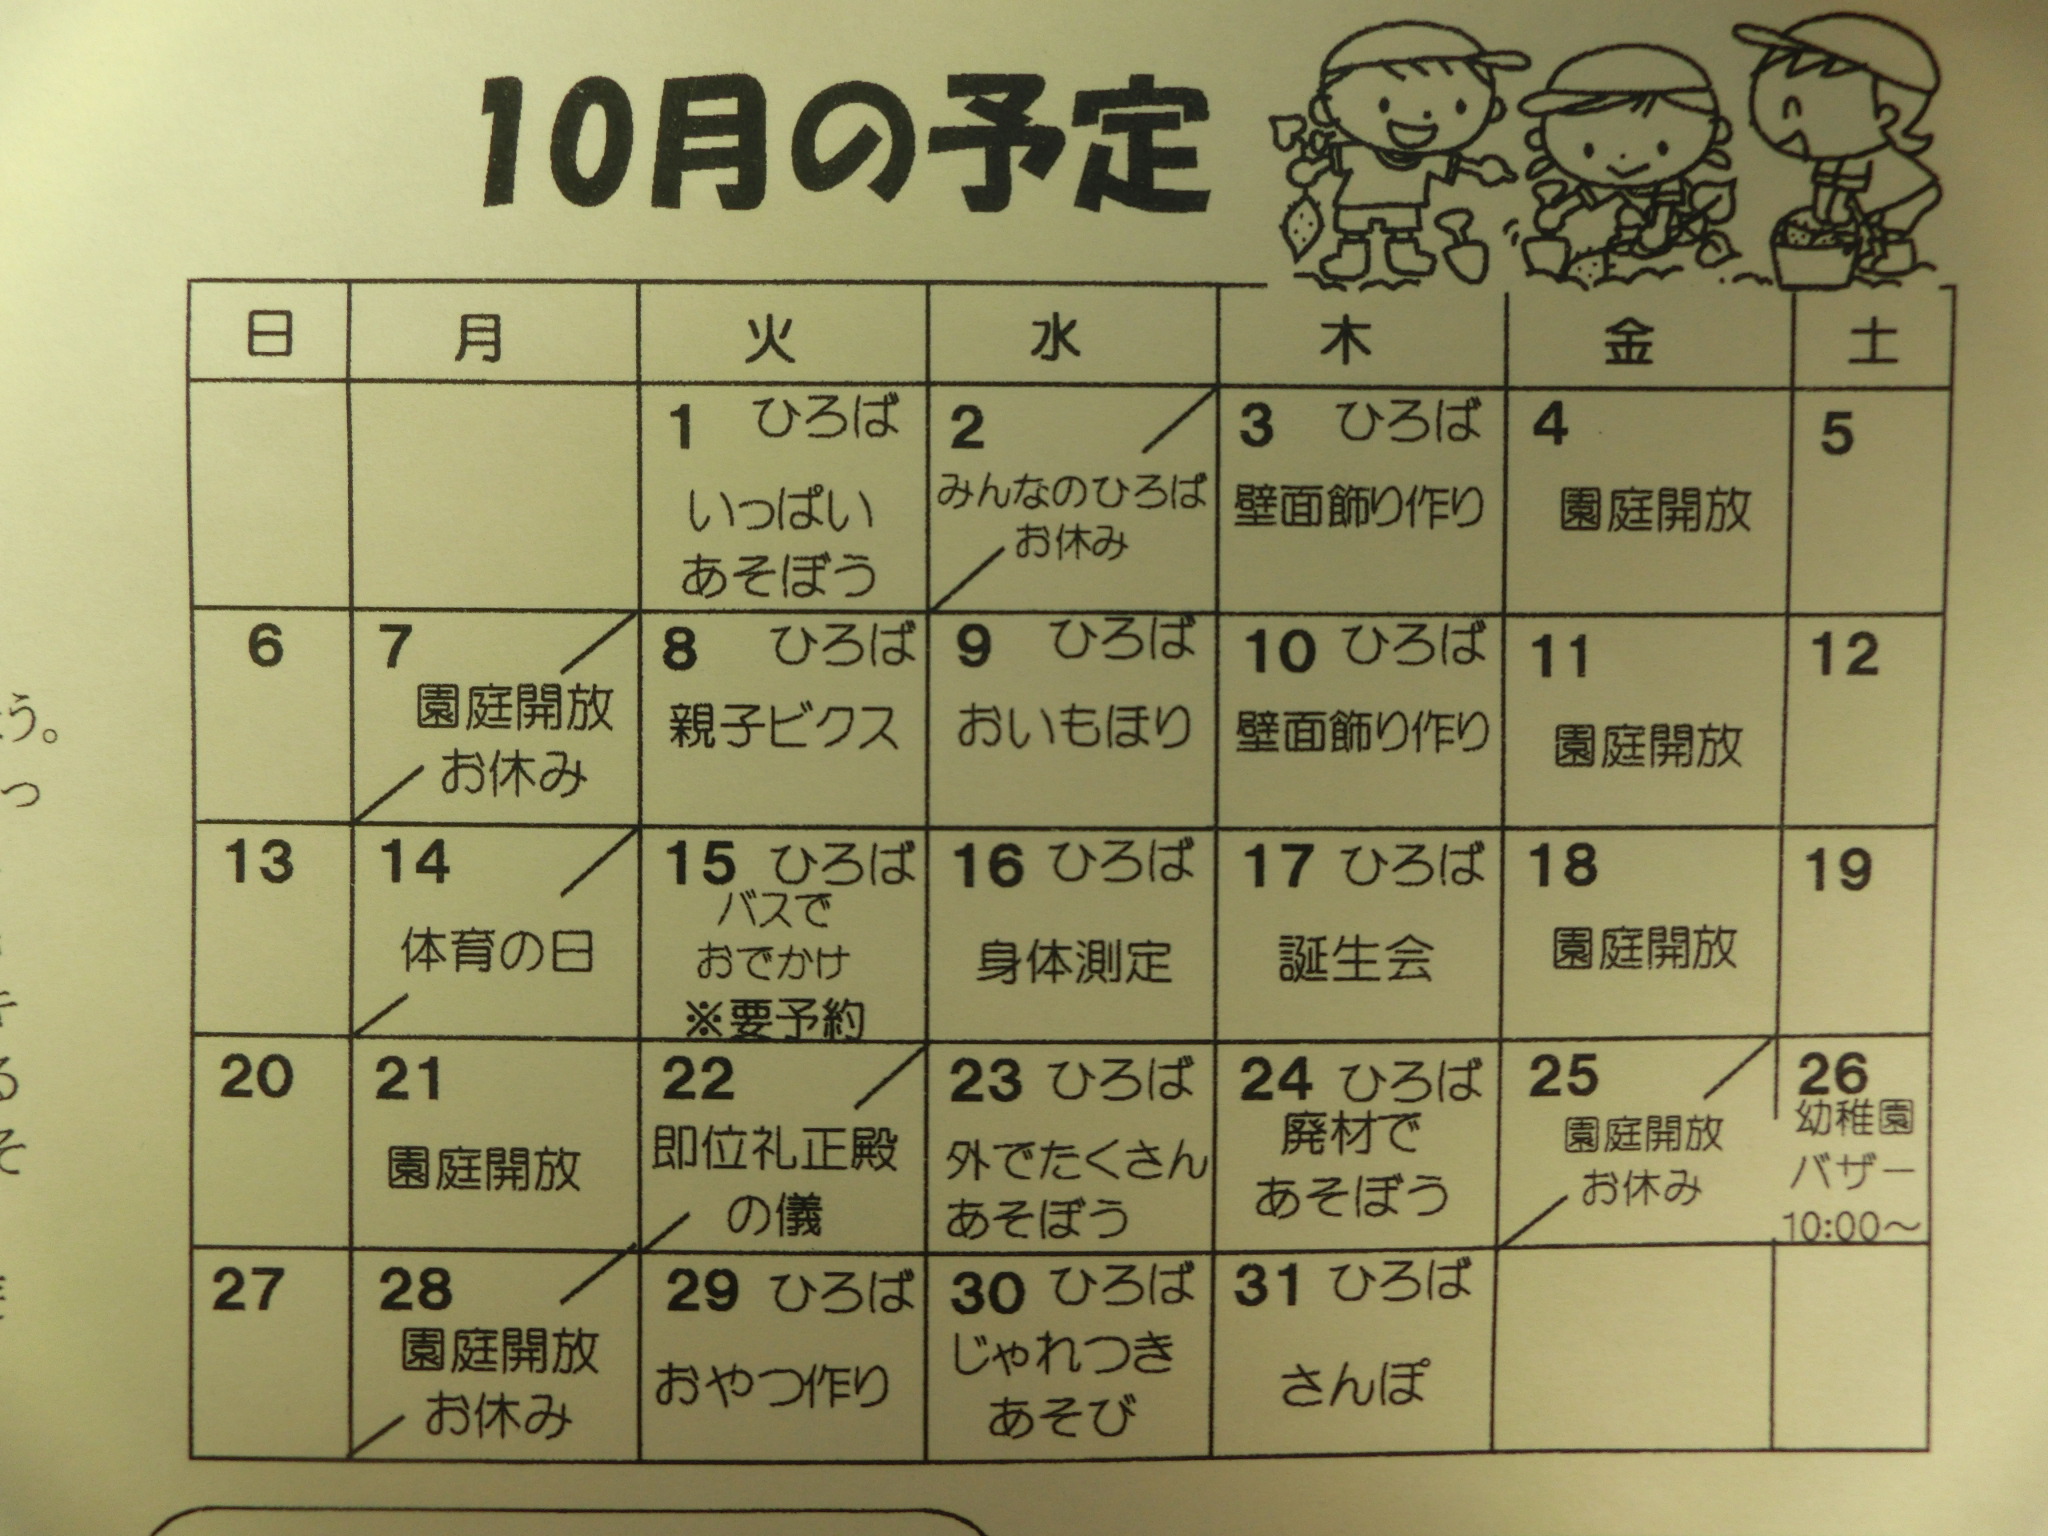 10月の予定
日 月 火 水 木 金 土
1 ひろば
いっぱい
あそぼう
2
みんなのひろば
お休み
3 ひろば
壁面飾り作り
4
園庭開放
5
6
7
園庭開放
お休み
8 ひろば
親子ビクス
9 ひろば
おいもほり
10 ひろば
壁面飾り作り
11
園庭開放
12
13
14
体育の日
15 ひろば
バスで
おでかけ
※要予約
16 ひろば
身体測定
17 ひろば
誕生会
18
園庭開放
19
20
21
園庭開放
22
即位礼正殿
の儀
23 ひろば
外でたくさん
あそぼう
24 ひろば
廃材で
あそぼう
25
園庭開放
お休み
26
幼稚園
バザー
10:00～
27
28
園庭開放
お休み
29 ひろば
おやつ作り
30 ひろば
じゃれつき
あそび
31 ひろば
さんぽ
う。
っ
る
そ